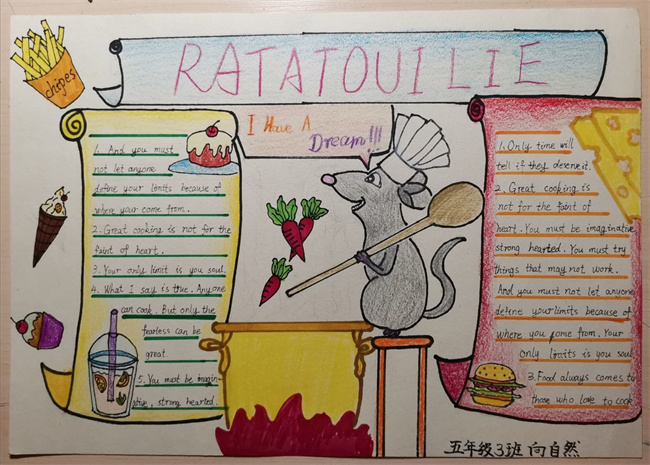 RATATOUILIE
chipes
I Have A
Dream!!!
1. And you must
not let anyone
define your limits because of
where your come from.
2. Great cooking is not for the
faint of heart.
3. Your only limit is you soul.
4. What I say is true. Anyone
can cook. But only the
fearless can be
great.
5. You must be imagin-
ative, strong hearted.
1. Only time will
tell if they deserve it.
2. Great cooking is
not for the faint of
heart. You must be imaginative
strong hearted. You must try
things that may not work.
And you must not let anyone
define your limits because of
where you come from. Your
only limits is you soul
3. Food always comes to
those who love to cook
五年级3班 向自然